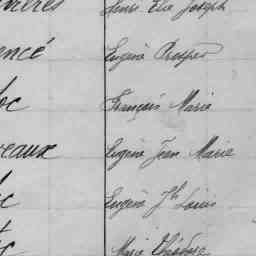 Henri Elie Joseph
encé Eugène Prosper
oc François Marie
eaux Eugène Jean Marie
Eugène Jh Louis
Marie Théodore